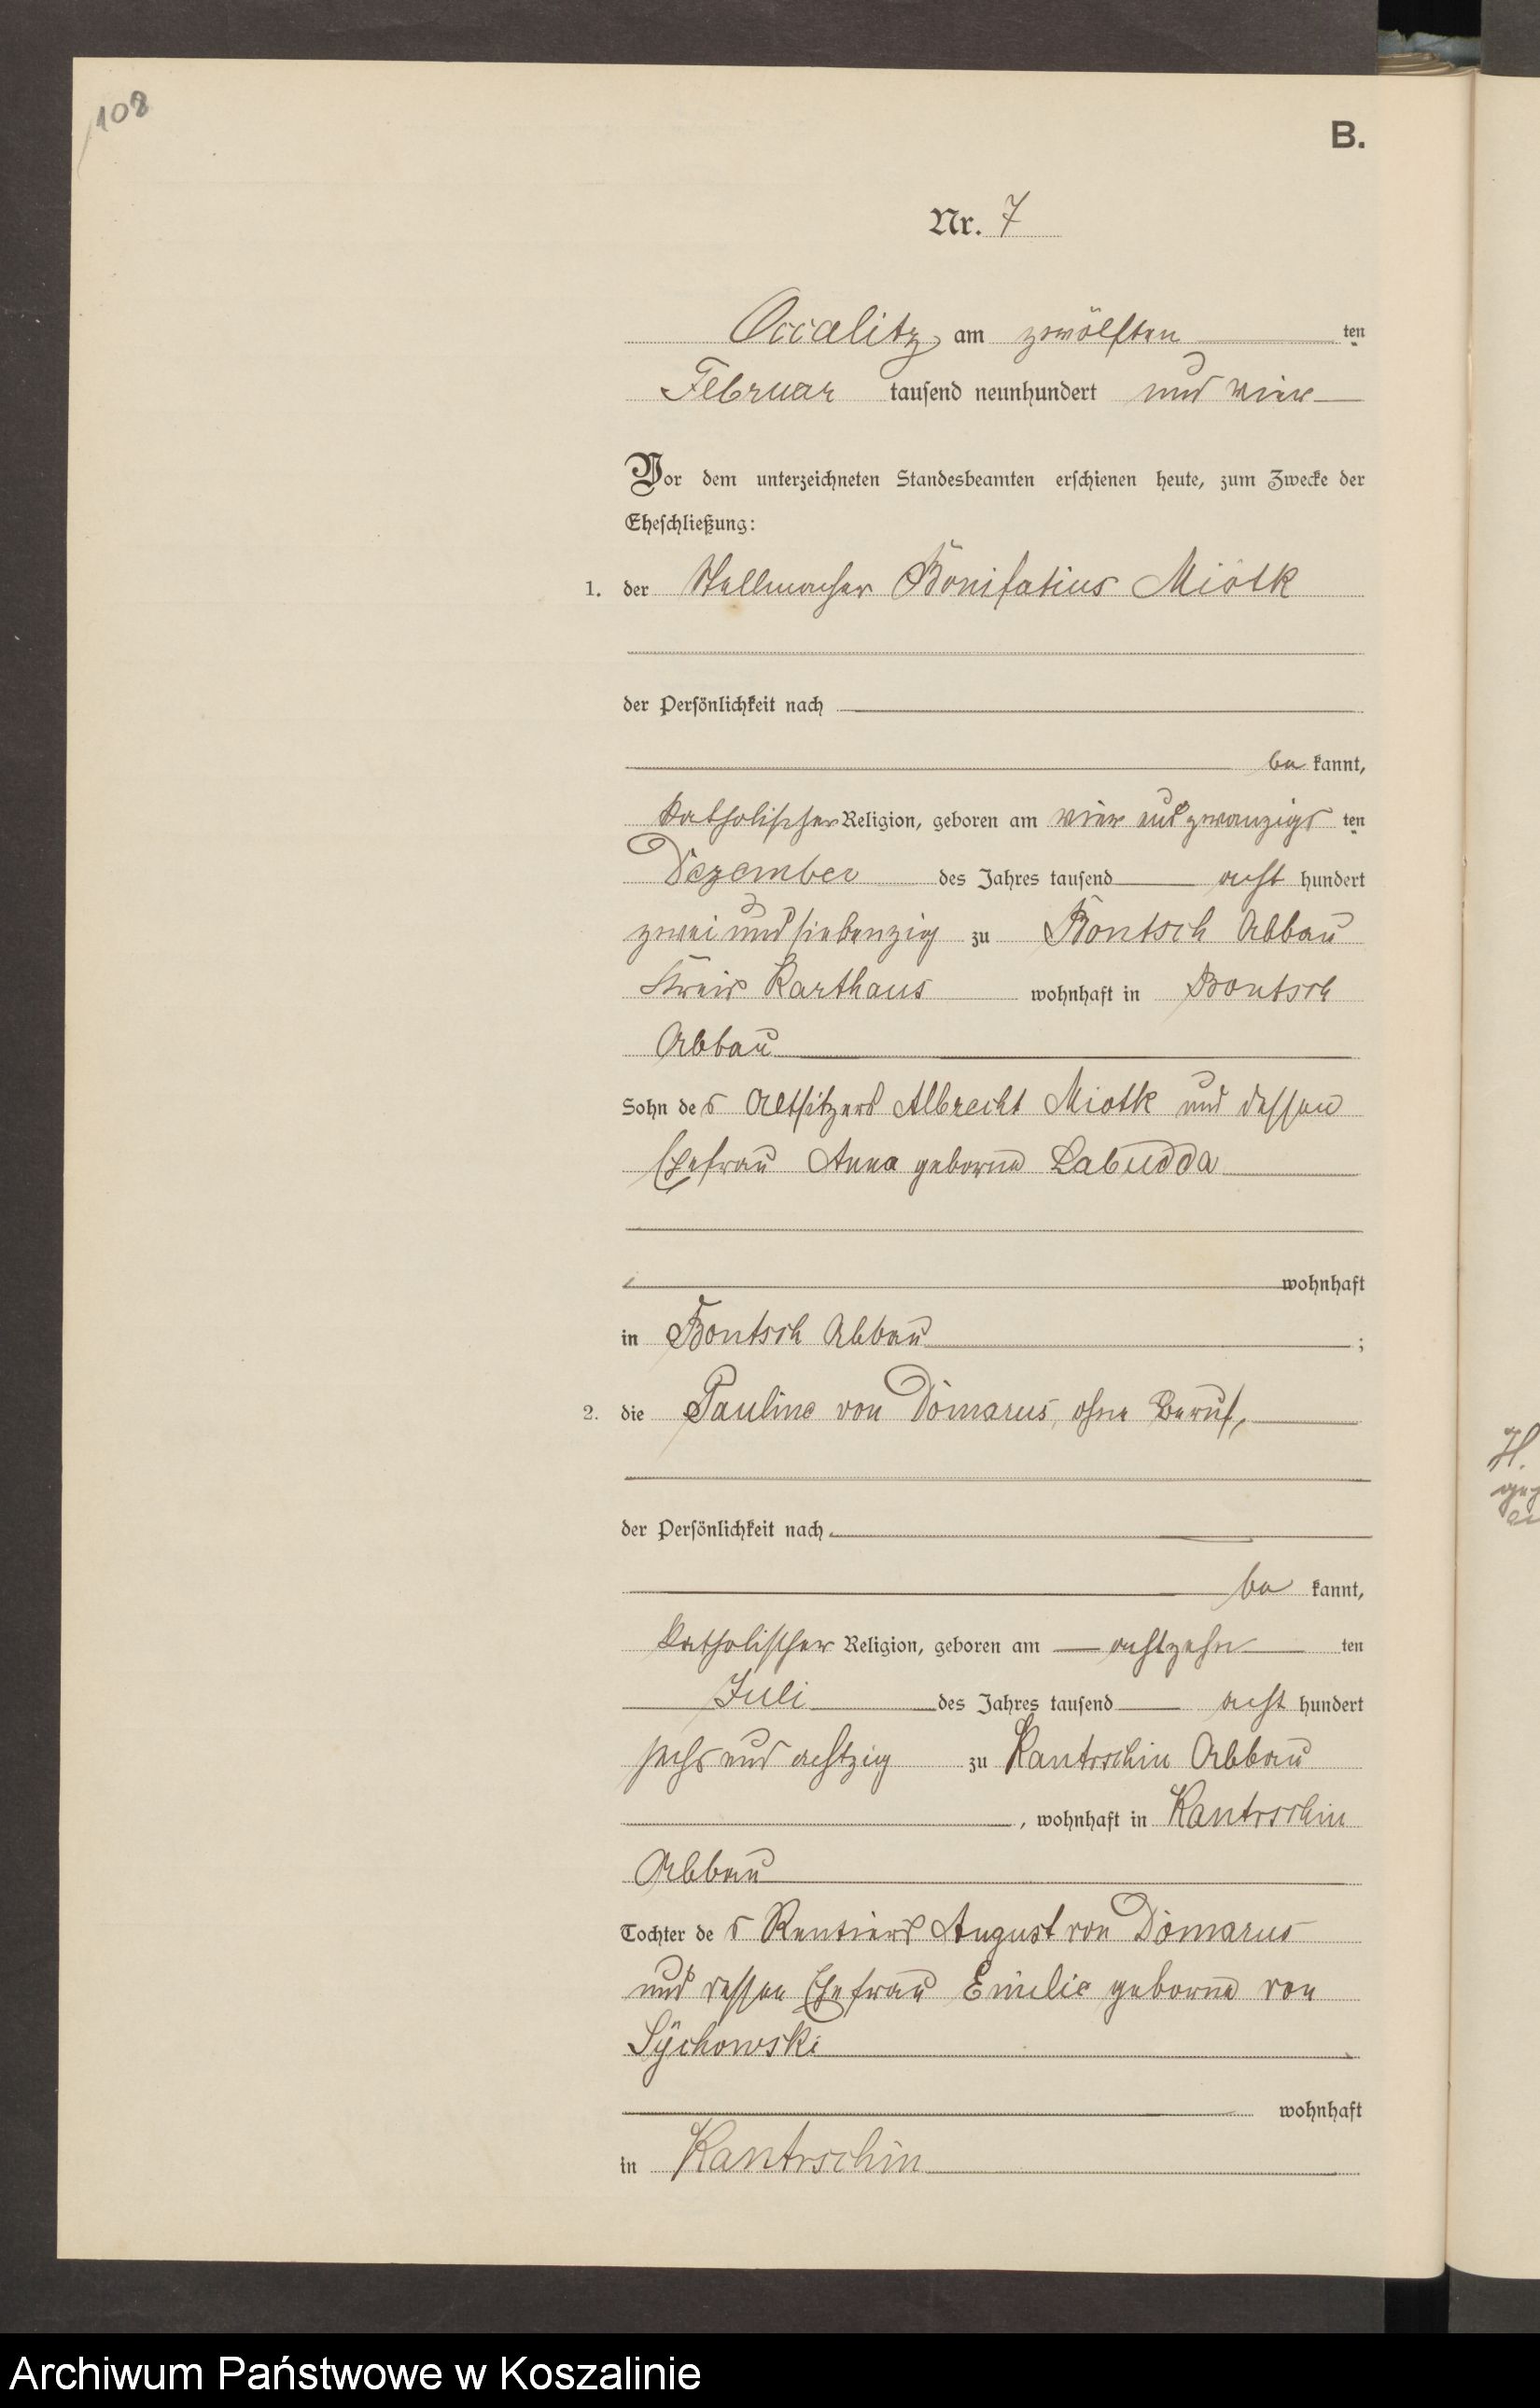 108
B.
Nr. 7
Occalitz, am zwölften ten
Februar tausend neunhundert und vier
Vor dem unterzeichneten Standesbeamten erschienen heute, zum Zwecke der
Eheschließung:
1. der Stellmacher Bonifatius Miotk
der Persönlichkeit nach
be kannt,
katholischer Religion, geboren am vier und zwanzigs ten
Dezember des Jahres tausend acht hundert
zwei und siebenzig zu Bontsch Abbau
Kreis Karthaus wohnhaft in Bontsch
Abbau
Sohn des Altsitzers Albrecht Miotk und dessen
Ehefrau Anna geborne Labudda
wohnhaft
in Bontsch Abbau ;
2. die Pauline von Domarus, ohne Beruf,
der Persönlichkeit nach
be kannt,
katholischer Religion, geboren am achtzehn ten
Juli des Jahres tausend acht hundert
sechs und achtzig zu Kantrschin Abbau
, wohnhaft in Kantrschin
Abbau
Tochter des Rentiers August von Domarus
und dessen Ehefrau Emilie geborne von
Sychowski
wohnhaft
in Kantrschin
H.
Archiwum Państwowe w Koszalinie